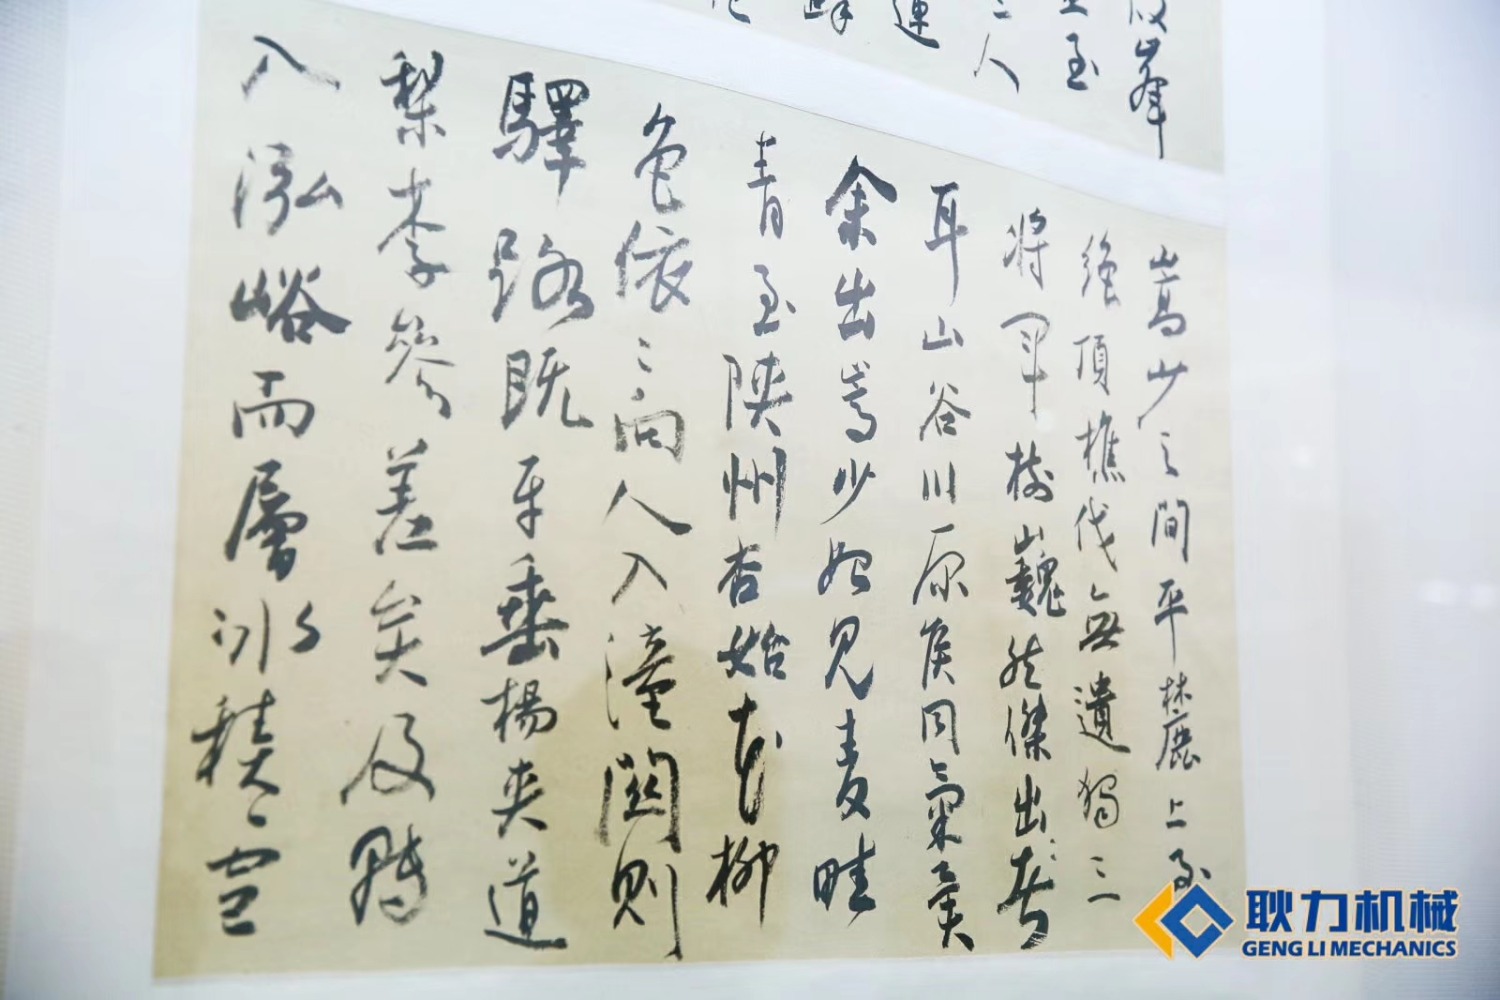 峯
至
人
連
嵩少之間平麓上至
絕頂樵伐無遺獨三
將軍樹巍然傑出
耳山谷川原侯同氣異
余出嵩少始見麦畦
青至陝州杏始花柳
色依〻向人入潼關則
驛路既平垂楊夾道
梨李參差矣及轉
入泓峪而層冰積雪
耿力机械
GENG LI MECHANICS